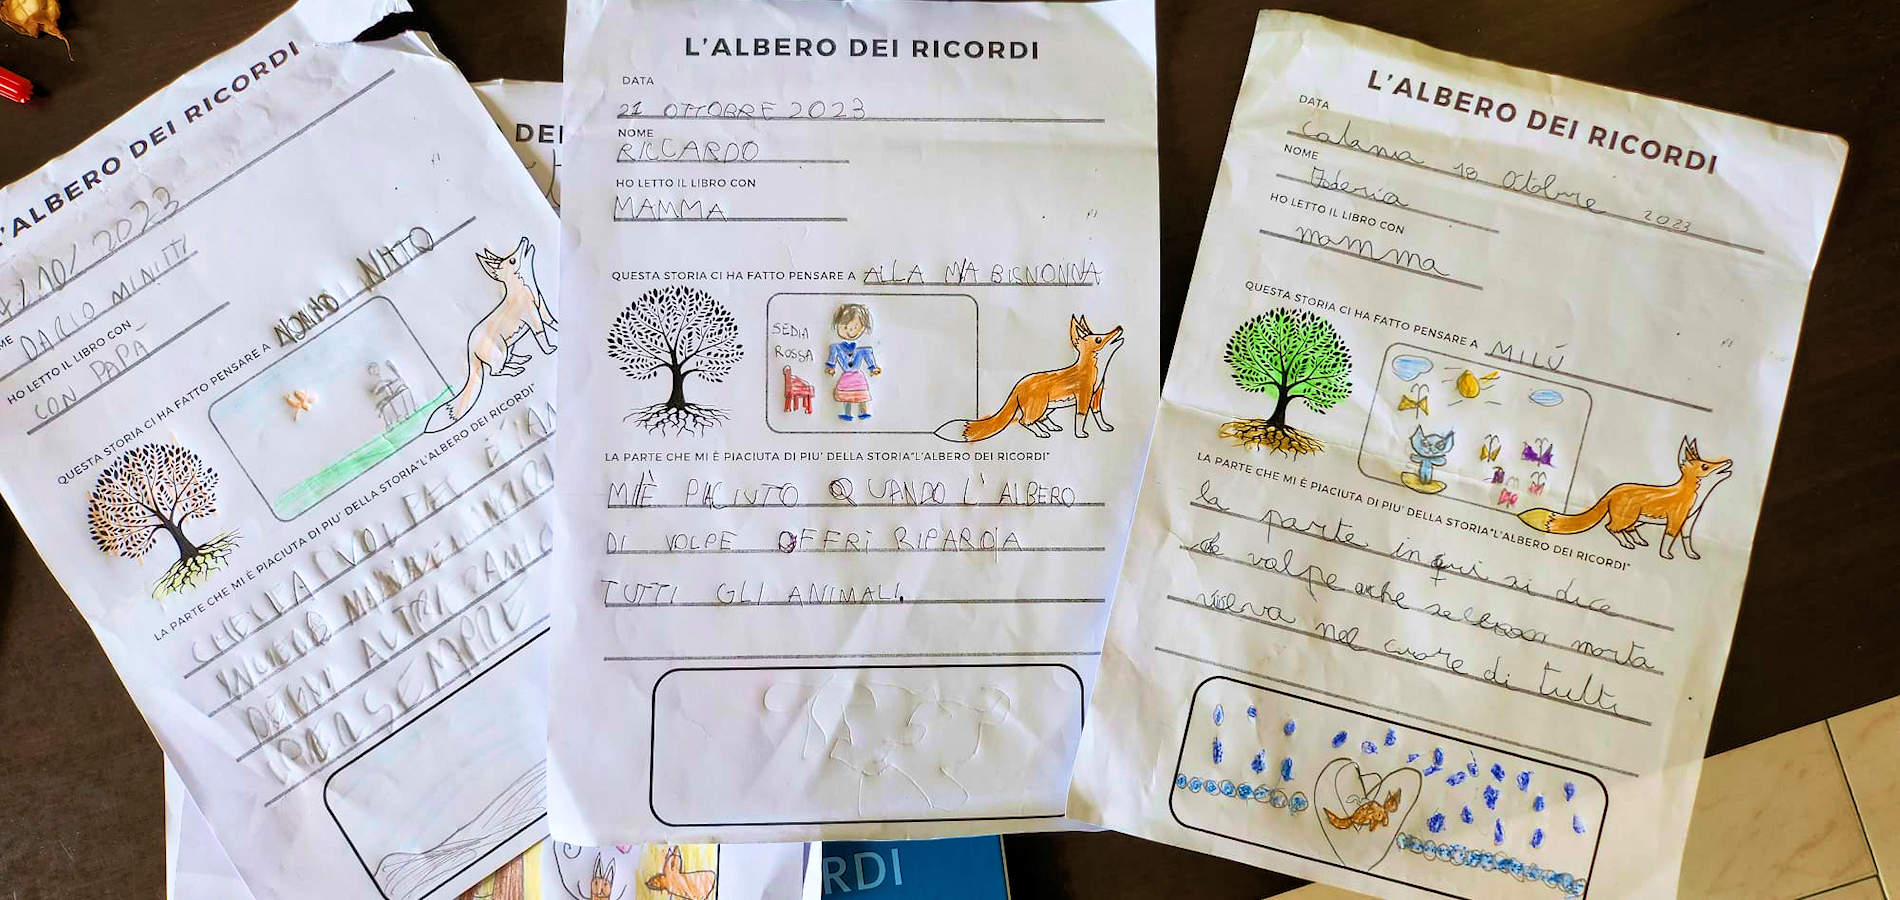 L'ALBERO DEI RICORDI
/10/2023
DARIO MINUTTI
HO LETTO IL LIBRO CON
CON PAPÀ
QUESTA STORIA CI HA FATTO PENSARE A NONNO NITTO
LA PARTE CHE MI È PIACIUTA DI PIU' DELLA STORIA"L'ALBERO DEI RICORDI"
CHE LA VOLPE È
PER SEMPRE
DEI
L'ALBERO DEI RICORDI
DATA
21 OTTOBRE 2023
NOME
RICCARDO
HO LETTO IL LIBRO CON
MAMMA
QUESTA STORIA CI HA FATTO PENSARE A ALLA MIA BISNONNA
SEDIA
ROSSA
LA PARTE CHE MI È PIACIUTA DI PIU' DELLA STORIA"L'ALBERO DEI RICORDI"
MI È PIACIUTO QUANDO L'ALBERO
DI VOLPE OFFRÌ RIPARO A
TUTTI GLI ANIMALI.
L'ALBERO DEI RICORDI
DATA
Catania 18 Ottobre 2023
NOME
HO LETTO IL LIBRO CON
mamma
QUESTA STORIA CI HA FATTO PENSARE A MILÚ
LA PARTE CHE MI È PIACIUTA DI PIU' DELLA STORIA"L'ALBERO DEI RICORDI"
la parte in cui si dice
che volpe anche se morta
viveva nel cuore di tutti
RDI